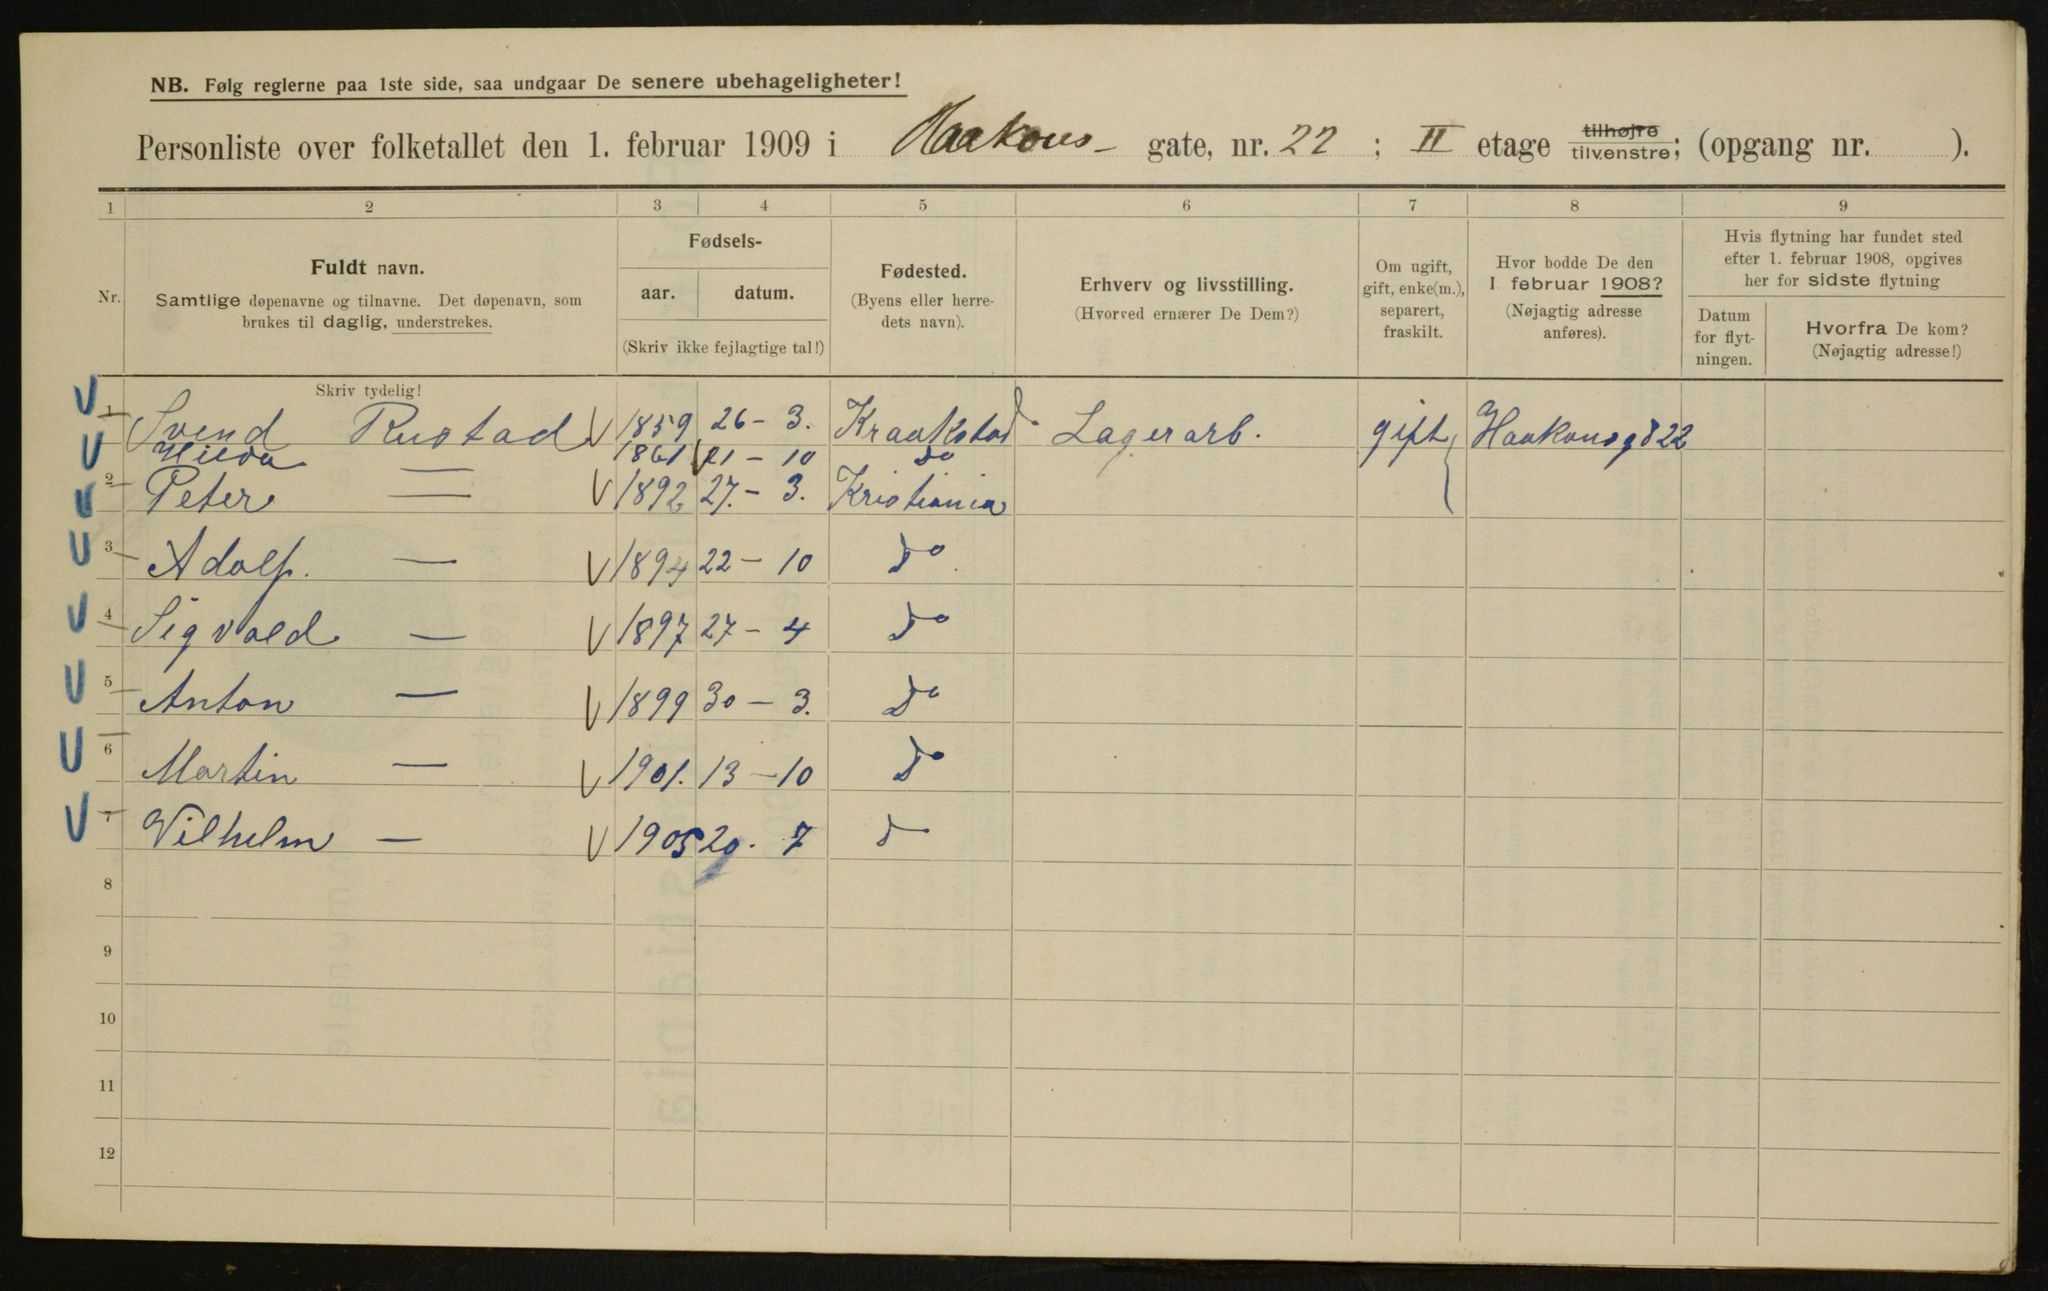 NB. Følg reglerne paa 1ste side, saa undgaar De senere ubehageligheter!
Personliste over folketallet den 1. februar 1909 i Haakons- gate, nr. 22 ; II etage tilhøjre tilvenstre; (opgang nr. ).
1 2 3 4 5 6 7 8 9
Nr.
Fuldt navn.
Samtlige døpenavne og tilnavne. Det døpenavn, som
brukes til daglig, understrekes.
Fødsels-
aar. datum.
(Skriv ikke fejlagtige tal!)
Fødested.
(Byens eller herre-
dets navn).
Erhverv og livsstilling.
(Hvorved ernærer De Dem?)
Om ugift,
gift, enke(m.),
separert,
fraskilt.
Hvor bodde De den
1. februar 1908?
(Nøjagtig adresse
anføres).
Hvis flytning har fundet sted
efter 1. februar 1908, opgives
her for sidste flytning
Datum
for flyt-
ningen.
Hvorfra De kom?
(Nøjagtig adresse!)
Skriv tydelig!
1 Svend Rustad 1859 26 - 3. Kraakstad Lagerarb. gift Haakonsgd 22
Hilda — 1861 21 - 10 do
2 Peter — 1892 27. - 3. Kristiania
3 Adolf. — 1894 22 - 10 do
4 Sigvald — 1897 27 - 4 do
5 Anton — 1899 30 - 3. do
6 Martin — 1901. 13 - 10 do
7 Vilhelm — 1905 20. 7 d
8
9
10
11
12